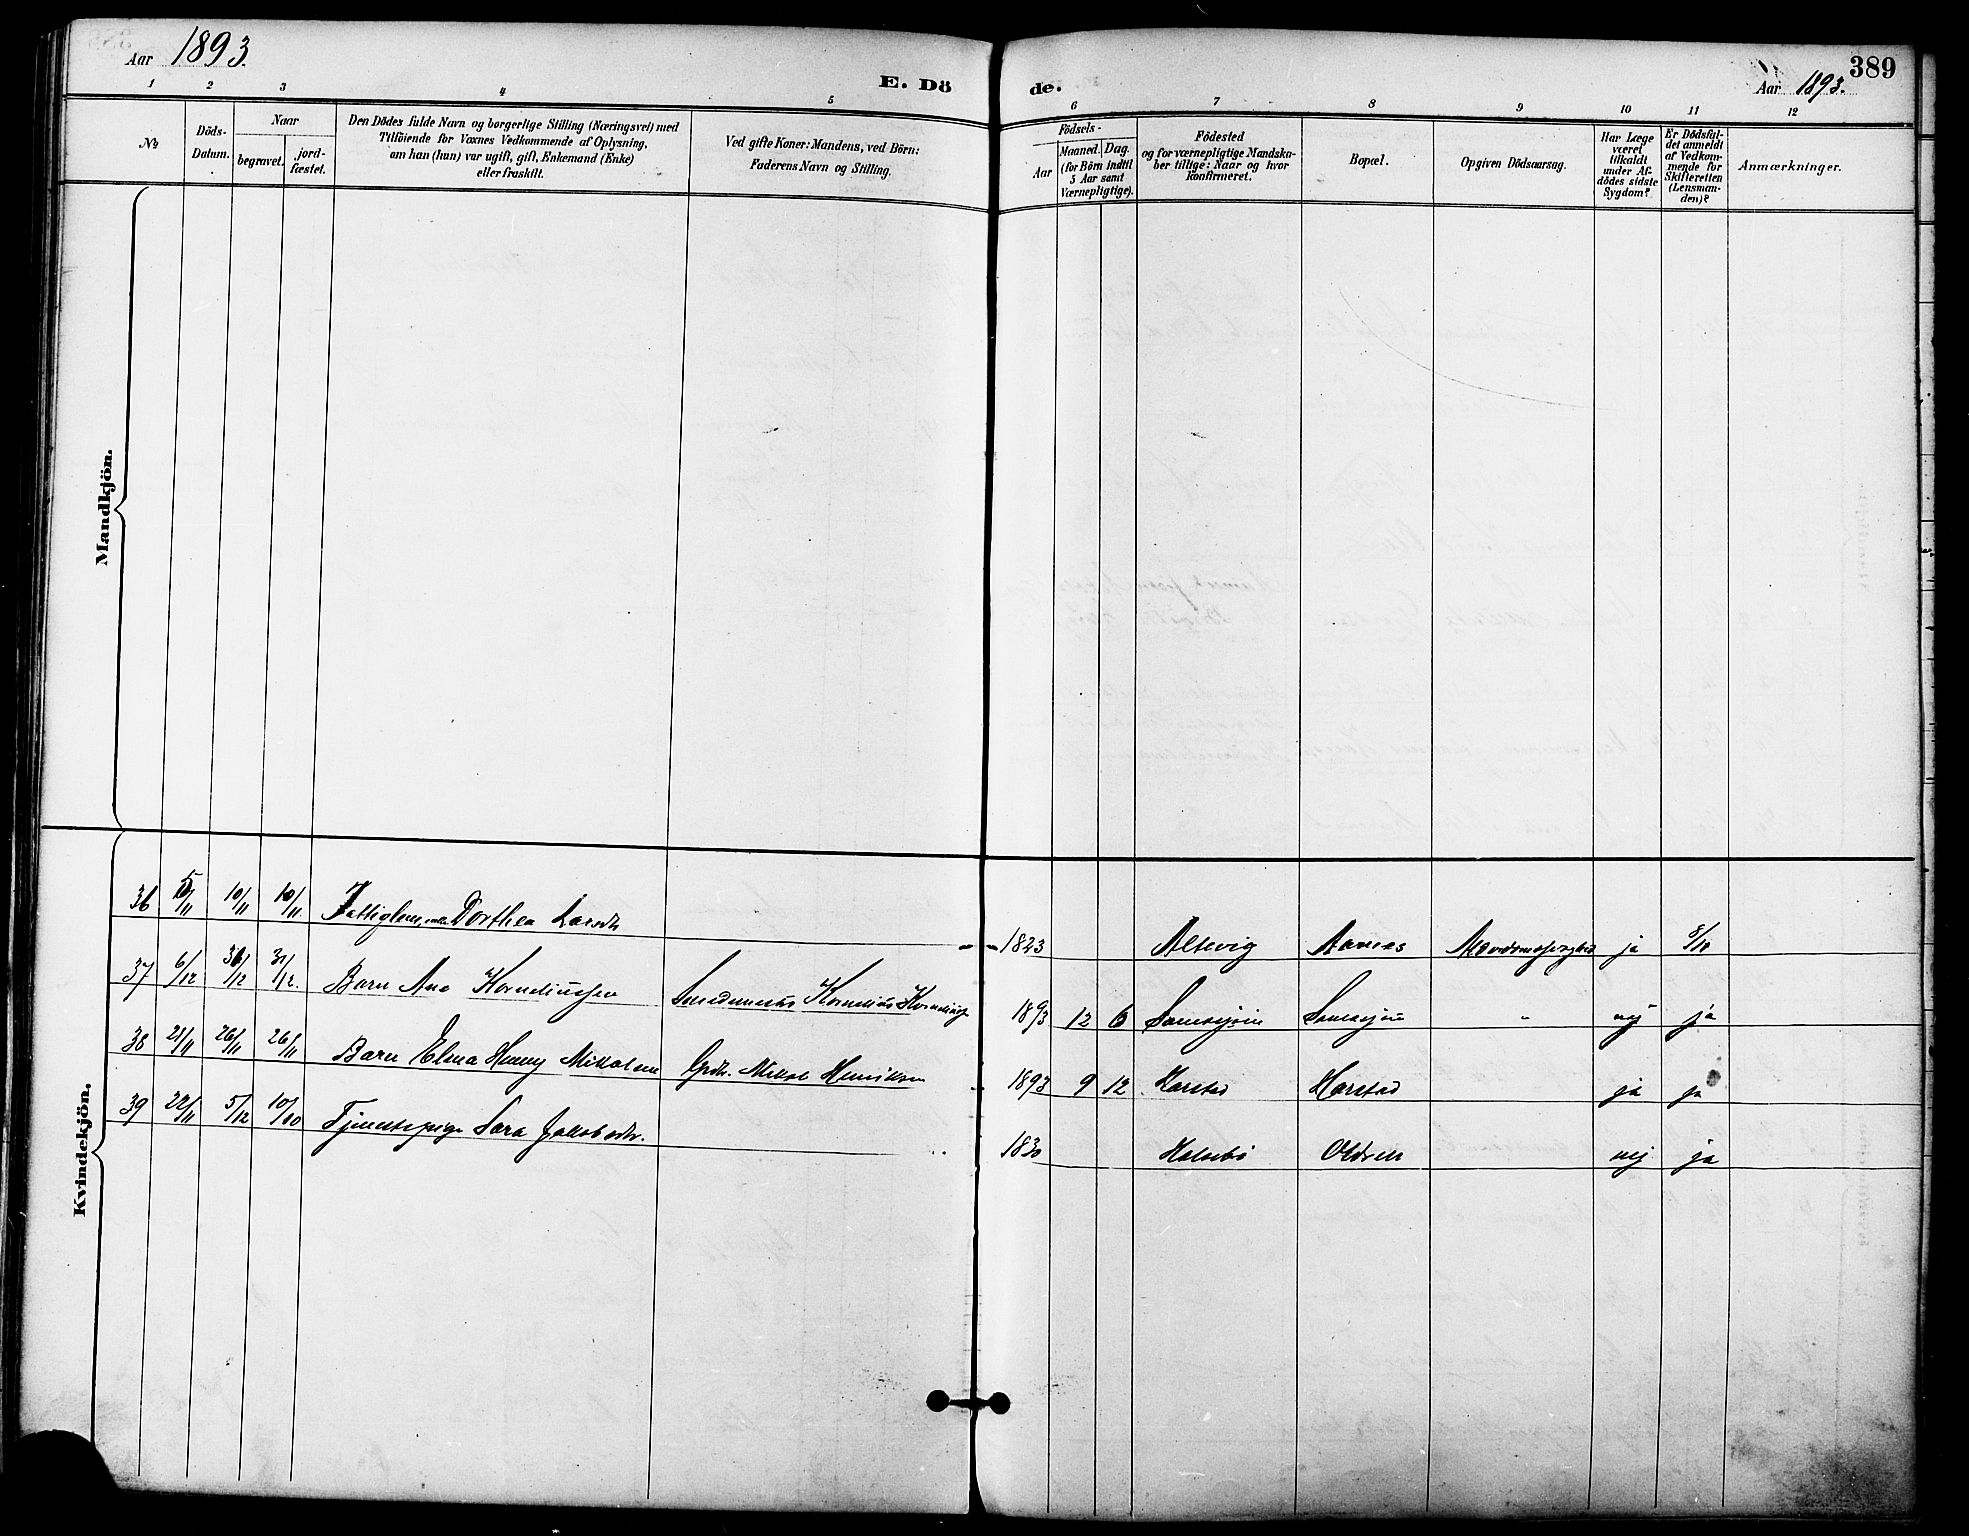 Aar 1893.
E. Dö
de.
Aar 1893.
389
1 2 3 4 5 6 7 8 9 10 11 12
No
Döds-
Datum.
Naar
begravet.
jord-
fæstet.
Den Dödes fulde Navn og borgerlige Stilling (Næringsvei) med
Tilföiende for Voxnes Vedkommende af Oplysning,
om han (hun) var ugift, gift, Enkemand (Enke)
eller fraskilt.
Ved gifte Koner: Mandens, ved Börn:
Faderens Navn og Stilling.
Födsels-
Aar
Maaned.
Dag.
(for Börn indtil
5 Aar samt
Værnepligtige).
Födested
og for værnepligtige Mandska-
ber tillige: Naar og hvor
konfirmeret.
Bopæl.
Opgiven Dödsaarsag.
Har Læge
været
tilkaldt
under Af-
dödes sidste
Sygdom?
Er Dödsfal-
det anmeldt
af Vedkom-
mende for
Skifteretten
(Lensman-
den)?
Anmærkninger.
Mandkjön.
Kvindekjön.
36 5/11 10/11 10/11 Dorthea Larsdtr 1823 Altevig Aanæs ja 8/10
37 6/12 31/12 31/12. Barn Ane Korneliussen Kornelius Korneliuss 1893 12 6 " nej ja
38 21/11 26/11 26/11 Barn Elma Henny Mikalsen Grdbr. Mikal Henriksen 1893 9 12 Harstad Harstad ja ja
39 22/11 5/12 10/10 Tjenestepige Sara Jakobsdtr. 1830 Halsebö nej ja